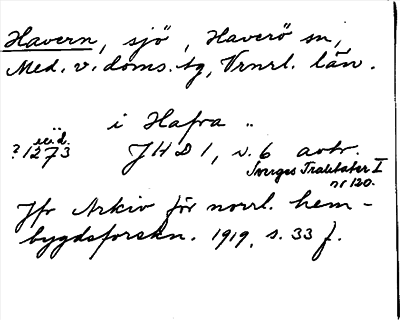 Havern, sjö, Haverö sn,
Med. v. doms. tg, Vrnrl. län.
i Hafra ..
?1273 JHD 1, s. 6 avtr.
Sveriges Traktater I
nr 120.
Jfr Arkiv för norrl. hem-
bygdsforskn. 1919, s. 33 f.